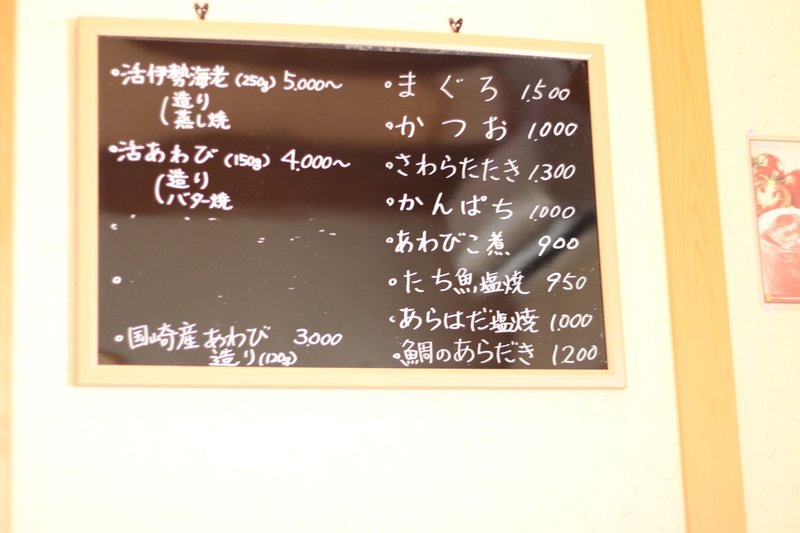 ・活伊勢海老 (250g) 5,000～
造り
蒸し焼
・活あわび (150g) 4,000～
造り
バター焼
・国崎産あわび 3,000
造り (120g)
・まぐろ 1,500
・かつお 1,000
・さわらたたき 1,300
・かんぱち 1,000
・あわびこ煮 900
・たち魚塩焼 950
・あらはだ塩焼 1,000
・鯛のあらだき 1200